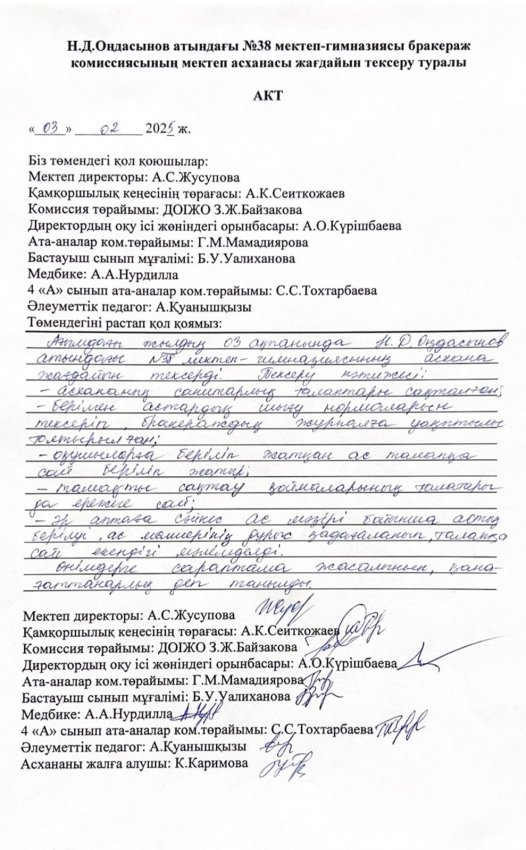 Н.Д.Оңдасынов атындағы №38 мектеп-гимназиясы бракераж
комиссиясының мектеп асханасы жағдайын тексеру туралы
АКТ
«03» 02 2025 ж.
Біз төмендегі қол қоюшылар:
Мектеп директоры: А.С.Жусупова
Қамқоршылық кеңесінің төрағасы: А.К.Сеиткожаев
Комиссия төрайымы: ДОІЖО З.Ж.Байзакова
Директордың оқу ісі жөніндегі орынбасары: А.О.Күрішбаева
Ата-аналар ком.төрайымы: Г.М.Мамадиярова
Бастауыш сынып мұғалімі: Б.У.Уалиханова
Медбике: А.А.Нурдилла
4 «А» сынып ата-аналар ком.төрайымы: С.С.Тохтарбаева
Әлеуметтік педагог: А.Қуанышқызы
Төмендегіні растап қол қоямыз:
Ағымдағы жылдың 03 ақпанында Н.Д.Оңдасынов
атындағы мектеп-гимназиясының асхана
жағдайын тексерді. Тексеру нәтижесі:
- асхананың санитарлық талаптары сақталған;
- берілген астардың шығу нормаларын
тексеріп, бракераждық журналға уақтылы
толтырылған;
- оқушыларға беріліп жатқан ас талапқа
сай беріліп жатыр;
- тамақты сақтау қоймаларының
да ереже сай;
- әр аптаға сәйкес ас мәзірі бойынша астың
берілуі, ас мөлшерінің дұрыс қадағаланып, талапқа
сай екендігі
өнімдерге сараптама жасалынып, қана-
ғаттанарлық деп танылды.
Мектеп директоры: А.С.Жусупова
Қамқоршылық кеңесінің төрағасы: А.К.Сеиткожаев
Комиссия төрайымы: ДОІЖО З.Ж.Байзакова
Директордың оқу ісі жөніндегі орынбасары: А.О.Күрішбаева
Ата-аналар ком.төрайымы: Г.М.Мамадиярова
Бастауыш сынып мұғалімі: Б.У.Уалиханова
Медбике: А.А.Нурдилла
4 «А» сынып ата-аналар ком.төрайымы: С.С.Тохтарбаева
Әлеуметтік педагог: А.Қуанышқызы
Асхананы жалға алушы: К.Каримова